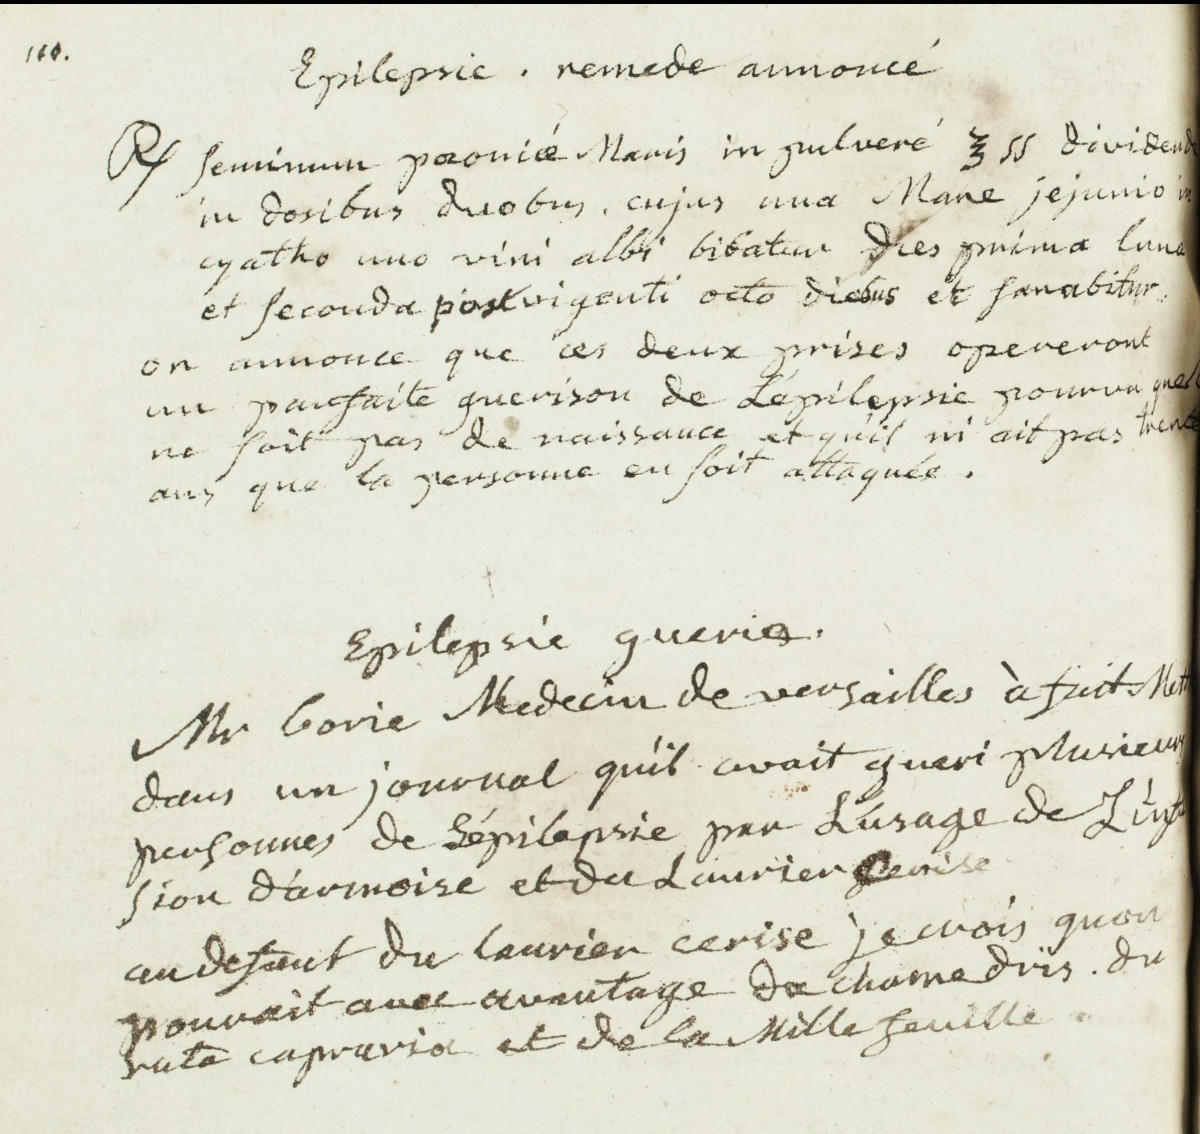 110.
Epilepsie . remede annoncé
℞ seminum pæoniæ Maris in pulveré ℥ ss dividend
in dosibus duobus. cujus una Mane jejunio in
cyatho uno vini albi bibatur dies prima luna
et seconda post viginti octo diebus et sanabitur.
on annonce que ces deux prises opereront
un parfaite guerison de L'épilepsie pourvu quel
ne soit pas de naissance et qu'il ni ait pas trente
ans que la personne en soit attaquée.
Epilepsie guerie.
Mr borie Medecin de versailles à fait Mett
dans un journal qu'il avait gueri plusieurs
personnes de L'épilepsie par L'usage de L'inf
sion d'armoise et du Laurier Cerise
au defaut du laurier cerise je crois quon
pouvait avec avantage du chamedris. du
ruta capraria et de la Mille feuille